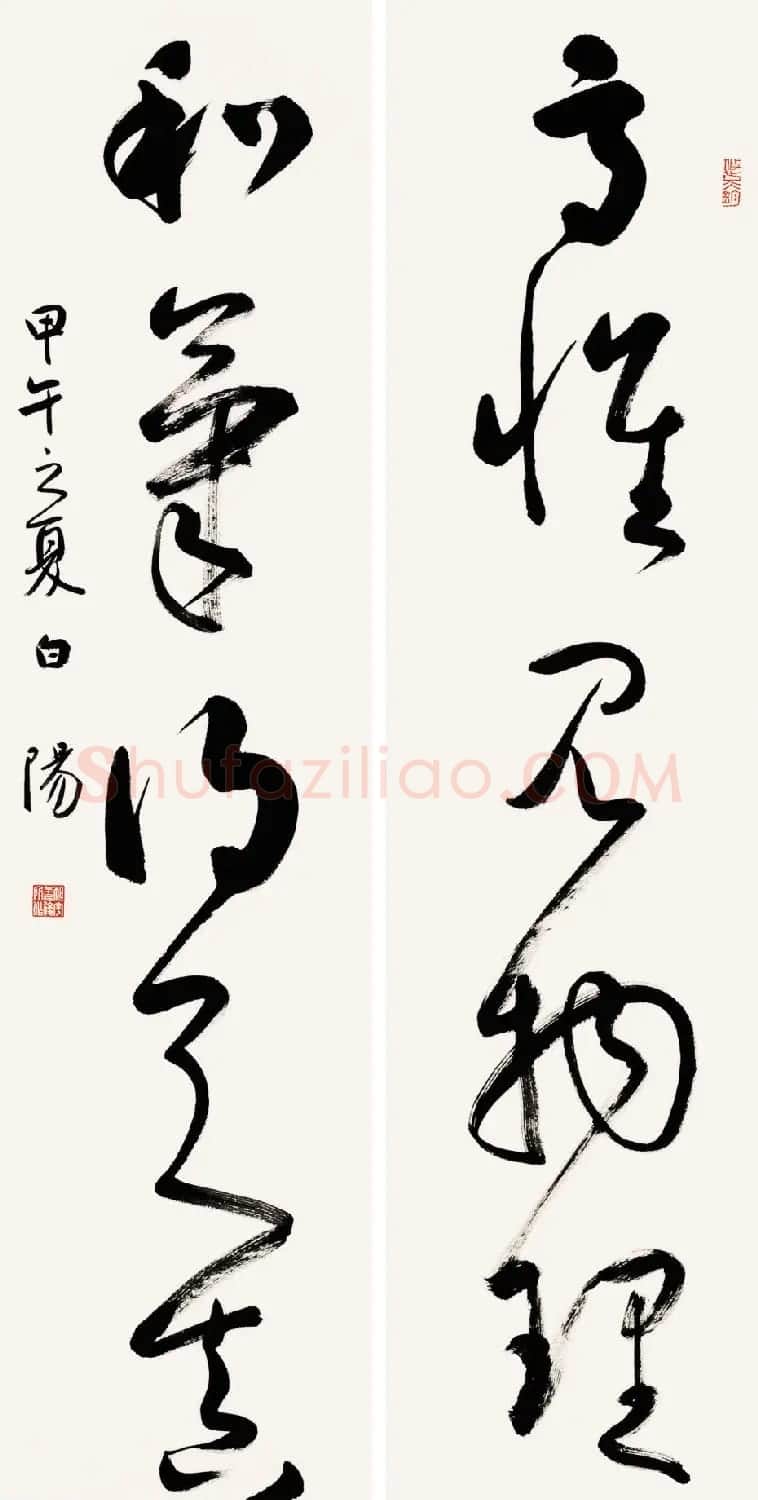 高懷見物理
和氣得天真
甲午之夏白陽
Shufaziliao.COM